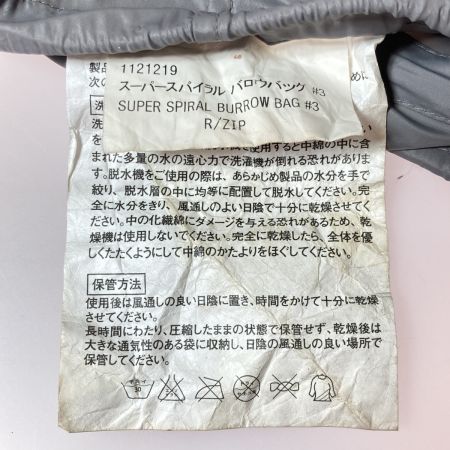 1121219
スーパースパイラル バロウバッグ #3
SUPER SPIRAL BURROW BAG #3
R/ZIP
製品
次の
に
洗
洗
使用すると中綿の中に含
まれた多量の水の遠心力で洗濯機が倒れる恐れがありま
す。脱水機をご使用の際は、あらかじめ製品の水分を手で
絞り、脱水層の中に均等に配置して脱水してください。完
全に水分をきり、風通しのよい日陰で十分に乾燥させてく
ださい。中の化繊綿にダメージを与える恐れがあるため、乾
燥機は使用しないでください。完全に乾燥したら、全体を優
しくたたくようにして中綿のかたよりをほぐしてください。
保管方法
使用後は風通しの良い日陰に置き、時間をかけて十分に乾燥
させてください。
長時間にわたり、圧縮したままの状態で保管せず、乾燥後は
大きな通気性のある袋に収納し、日陰の風通しの良い場所で
保管してください。